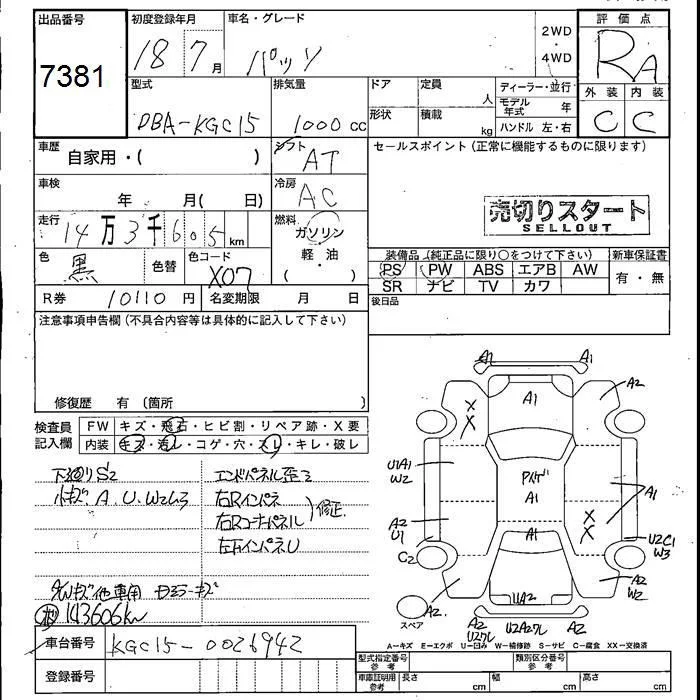 出品番号
7381
初度登録年月
18年 7月
車名・グレード
パッソ
2WD
・
4WD
評価点
RA
外装 内装
C C
型式
DBA-KGC15
排気量
1000cc
ドア 形状
定員 人
積載 kg
ディーラー・並行
モデル年式 年
ハンドル 左・右
車歴
自家用・( )
シフト
AT
セールスポイント (正常に機能するものに限ります)
売切りスタート
SELLOUT
車検
年 月( 日)
冷房
AC
走行
14万3千605km
燃料
ガソリン
軽・油
( )
色
黒
色替
色コード
X07
装備品 (純正品に限り○をつけて下さい)
新車保証書
PS PW ABS エアB AW
有・無
SR ナビ TV カワ
R券 10110円
名変期限 月 日
後日品
注意事項申告欄 (不具合内容等は具体的に記入して下さい)
修復歴 有 (箇所 )
検査員記入欄
FW キズ・飛石・ヒビ割・リペア跡・X要
内装 キズ・汚レ・コゲ・穴・スレ・キレ・破レ
下廻りS2
小キズ A.U.W2ムラ
エンドパネル歪ミ
右Rインパネ
右Rコーナーパネル
修正
左右インパネU
143606km
車台番号 KGC15-0026942
登録番号
A1 A1
A2
A1
X
X
U1A1
W2
Pハゲ
A1
A1
A2
U1
A1
X
X
U2C1
W3
C2
UA2
A2
W2
A2
スペア
A2
U2ワレ
U2A2ワレ
A2
A-キズ E-エクボ U-凹み W-補修跡 S-サビ C-腐食 XX-交換済
型式指定番号 参考
類別区分番号 参考
車庫証明用 参考
長さ cm
幅 cm
高さ cm